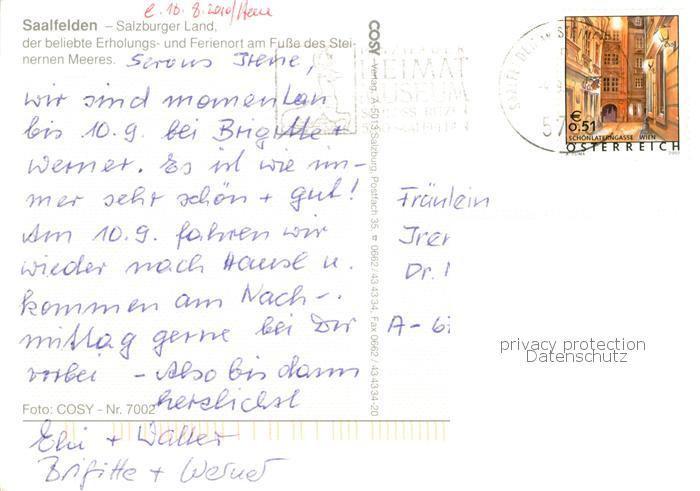 Saalfelden – Salzburger Land,
der beliebte Erholungs- und Ferienort am Fuße des Stei-
nernen Meeres.
Servus Irene,
wir sind momentan
bis 10.9. bei Brigitte +
Werner. Es ist wie im-
mer sehr schön + gut!
Am 10.9. fahren wir
wieder nach Hause u.
kommen am Nach-
mittag gerne bei Dir
vorbei – Also bis dann
herzlichst
Foto: COSY - Nr. 7002
Walter
Brigitte + Werner
COSY - Verlag, A-5013 Salzburg, Postfach 35, 0662 / 43 43 34, Fax 0662 / 43 43 34-20
HEIMAT
MUSEUM
€
0,51
SCHÖNLATERNGASSE WIEN
ÖSTERREICH
Fräulein
Dr.
A-
privacy protection
Datenschutz